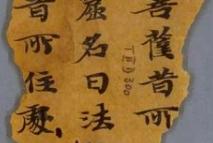 菩薩昔所
處名曰法
昔所住處
TⅡD 300